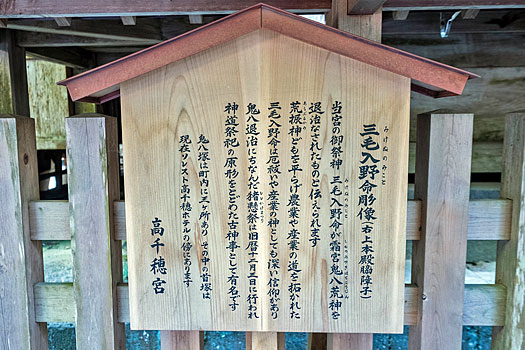 三毛入野命彫像（右上本殿脇障子）
当宮の御祭神 三毛入野命が霜宮鬼八荒神を
退治なされたものと伝えられます
荒振神どもを平らげ農業や産業の道を拓かれた
三毛入野命は厄祓いや産業の神としても深い信仰があり
鬼八退治にちなんだ猪懸祭は旧暦十二月三日に行われ
神道祭祀の原形をとどめた古神事として有名です
鬼八塚は町内に三ヶ所あり その中の首塚は
現在ソレスト高千穂ホテルの傍にあります
高千穂宮